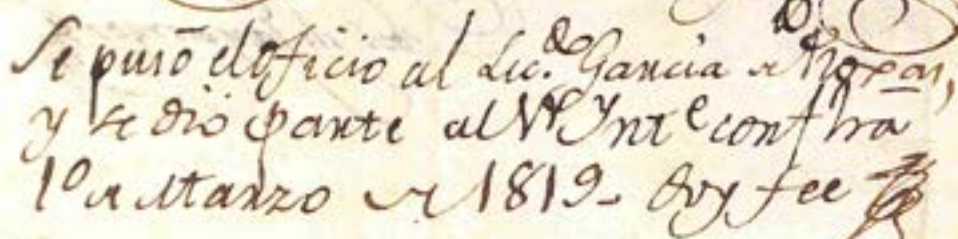 Se pusó el oficio al Lic.do Garcia de Rojas,
y se dió parte al Sr Ynte con fha
1º de Marzo de 1819- doy fee